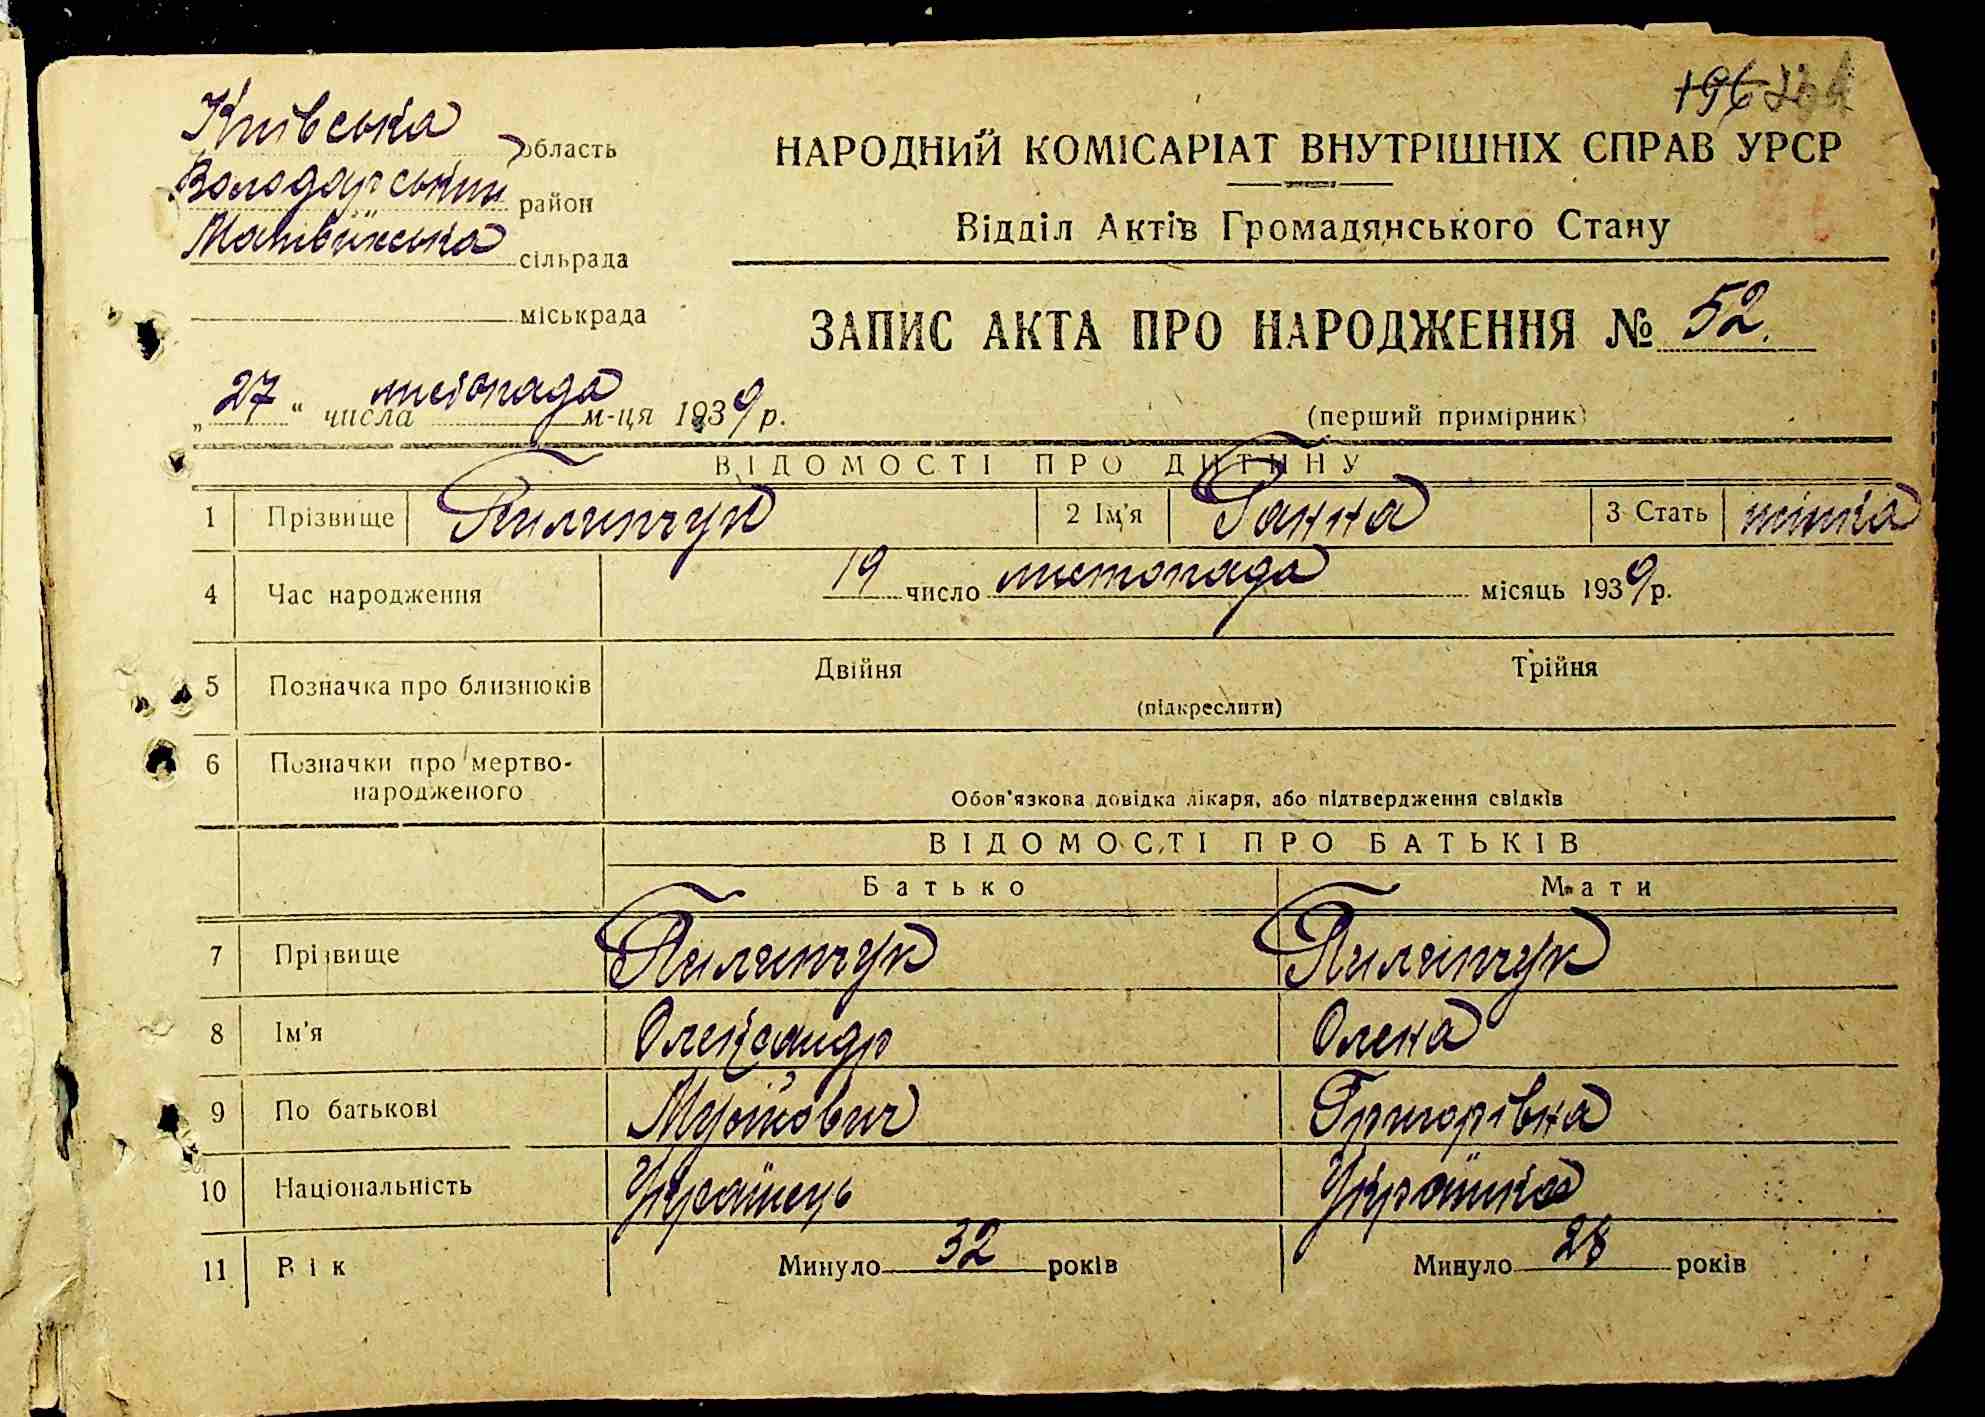 196
Київська область
Володарський район
Матвіїхська сільрада
міськрада
НАРОДНИЙ КОМІСАРІАТ ВНУТРІШНІХ СПРАВ УРСР
Відділ Актів Громадянського Стану
ЗАПИС АКТА ПРО НАРОДЖЕННЯ № 52.
„27" числа листопада м-ця 1939 р.
(перший примірник)
ВІДОМОСТІ ПРО ДИТИНУ
1 Прізвище Пилипчук 2 Ім'я Ганна 3 Стать жінка
4 Час народження 19 число листопада місяць 1939 р.
5 Позначка про близнюків Двійня Трійня
(підкреслити)
6 Позначки про мертво-
народженого
Обов'язкова довідка лікаря, або підтвердження свідків
ВІДОМОСТІ ПРО БАТЬКІВ
Батько Мати
7 Прізвище Пилипчук Пилипчук
8 Ім'я Олександр Олена
9 По батькові Мусійович Григорівна
10 Національність Українець Українка
11 Вік Минуло 32 років Минуло 28 років